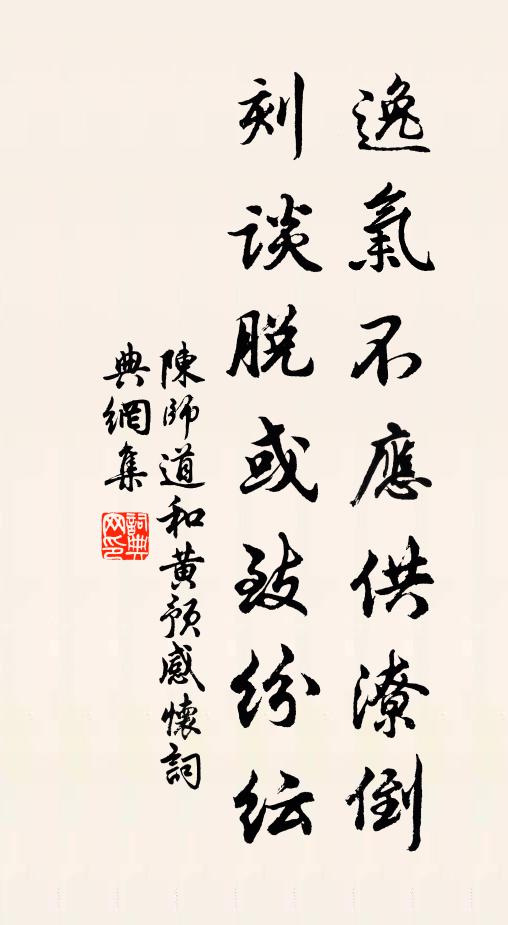 逸氣不應供潦倒
刻談脱或致紛紜
陳師道和黄預感懷詞
典網集
詞典
网印